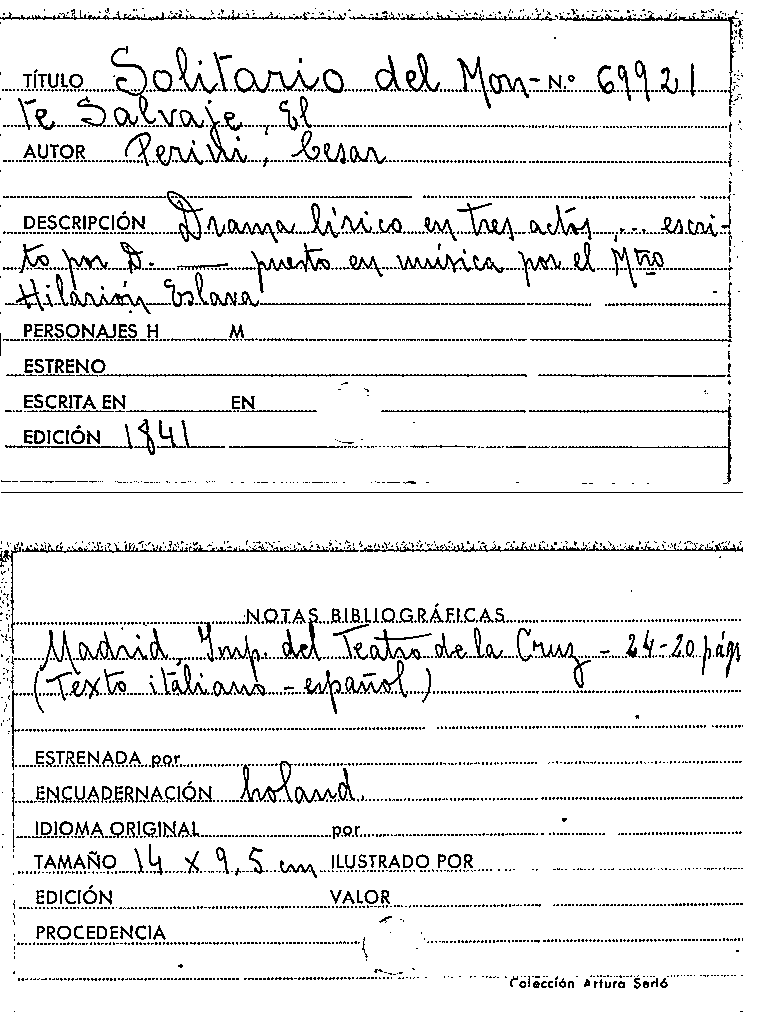 TÍTULO Solitario del Mon- N.º 69921
te Salvaje, El
AUTOR Perini, Cesar
DESCRIPCIÓN Drama lírico en tres actos ... escri-
to por D. — puesto en música por el Mtro
Hilarión Eslava
PERSONAJES H M
ESTRENO
ESCRITA EN EN
EDICIÓN 1841
NOTAS BIBLIOGRÁFICAS
Madrid, Imp. del Teatro de la Cruz - 24-20 págs
(Texto italiano - español)
ESTRENADA por
ENCUADERNACIÓN holand.
IDIOMA ORIGINAL por
TAMAÑO 14 x 9,5 cm ILUSTRADO POR
EDICIÓN VALOR
PROCEDENCIA
Colección Arturo Sedó